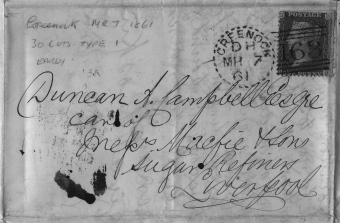 GREENOCK MR 7 1861
30 CUTS TYPE 1
GREENOCK
DH
MR 7
61
POSTAGE
163
Duncan A. Campbell Esqre
care of
Messrs Macfie & Sons
Sugar Refiners
Liverpool